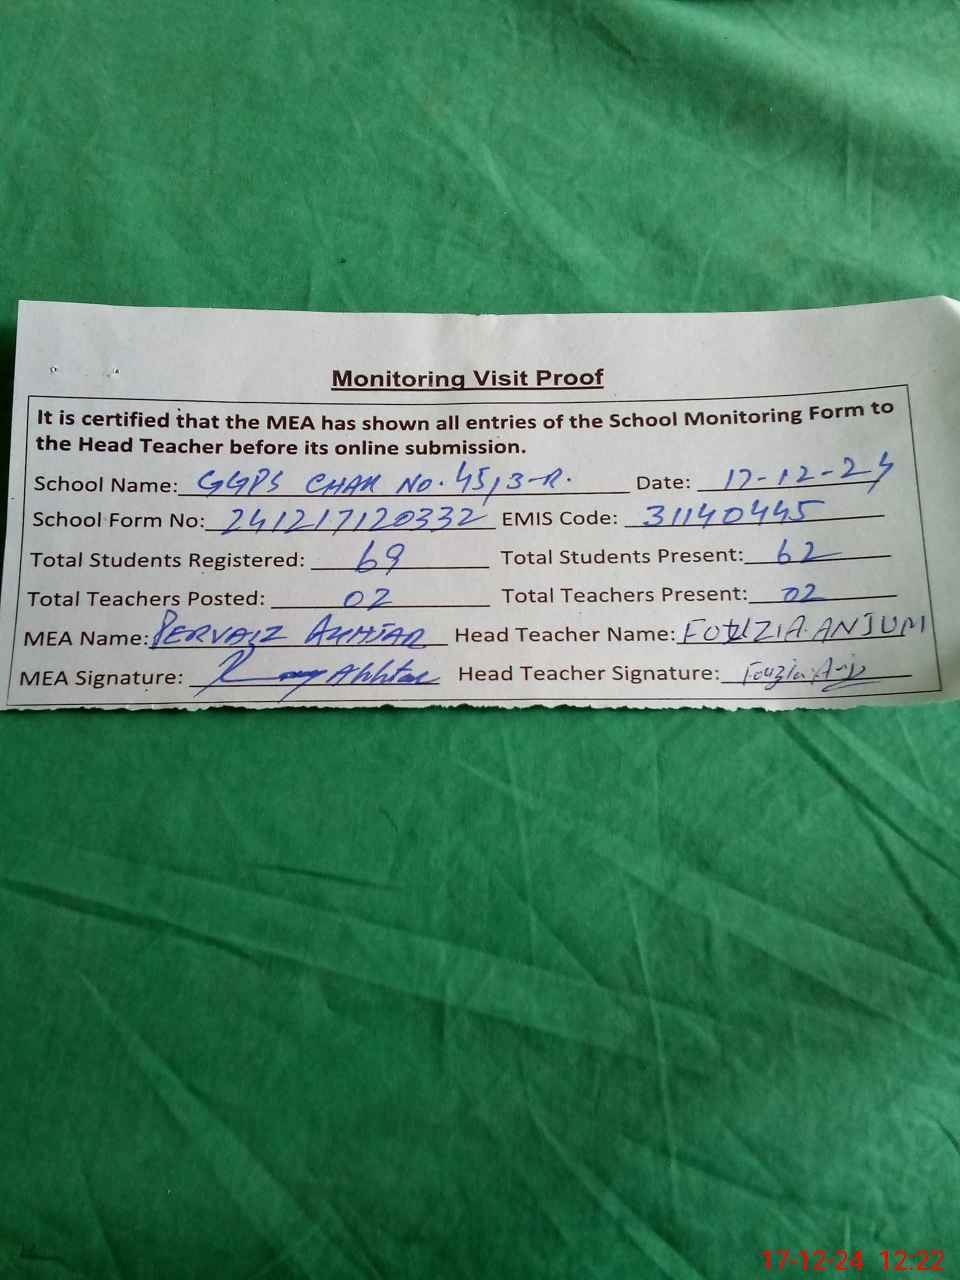 Monitoring Visit Proof
It is certified that the MEA has shown all entries of the School Monitoring Form to
the Head Teacher before its online submission.
School Name: GGPS CHAK NO. 45/3-R. Date: 17-12-24
School Form No: 241217120332 EMIS Code: 31140445
Total Students Registered: 69 Total Students Present: 62
Total Teachers Posted: 02 Total Teachers Present: 02
MEA Name: PERVAIZ AKHTAR Head Teacher Name: FOUZIA ANJUM
MEA Signature: Akhtar Head Teacher Signature: Fouzia
17-12-24 12:22